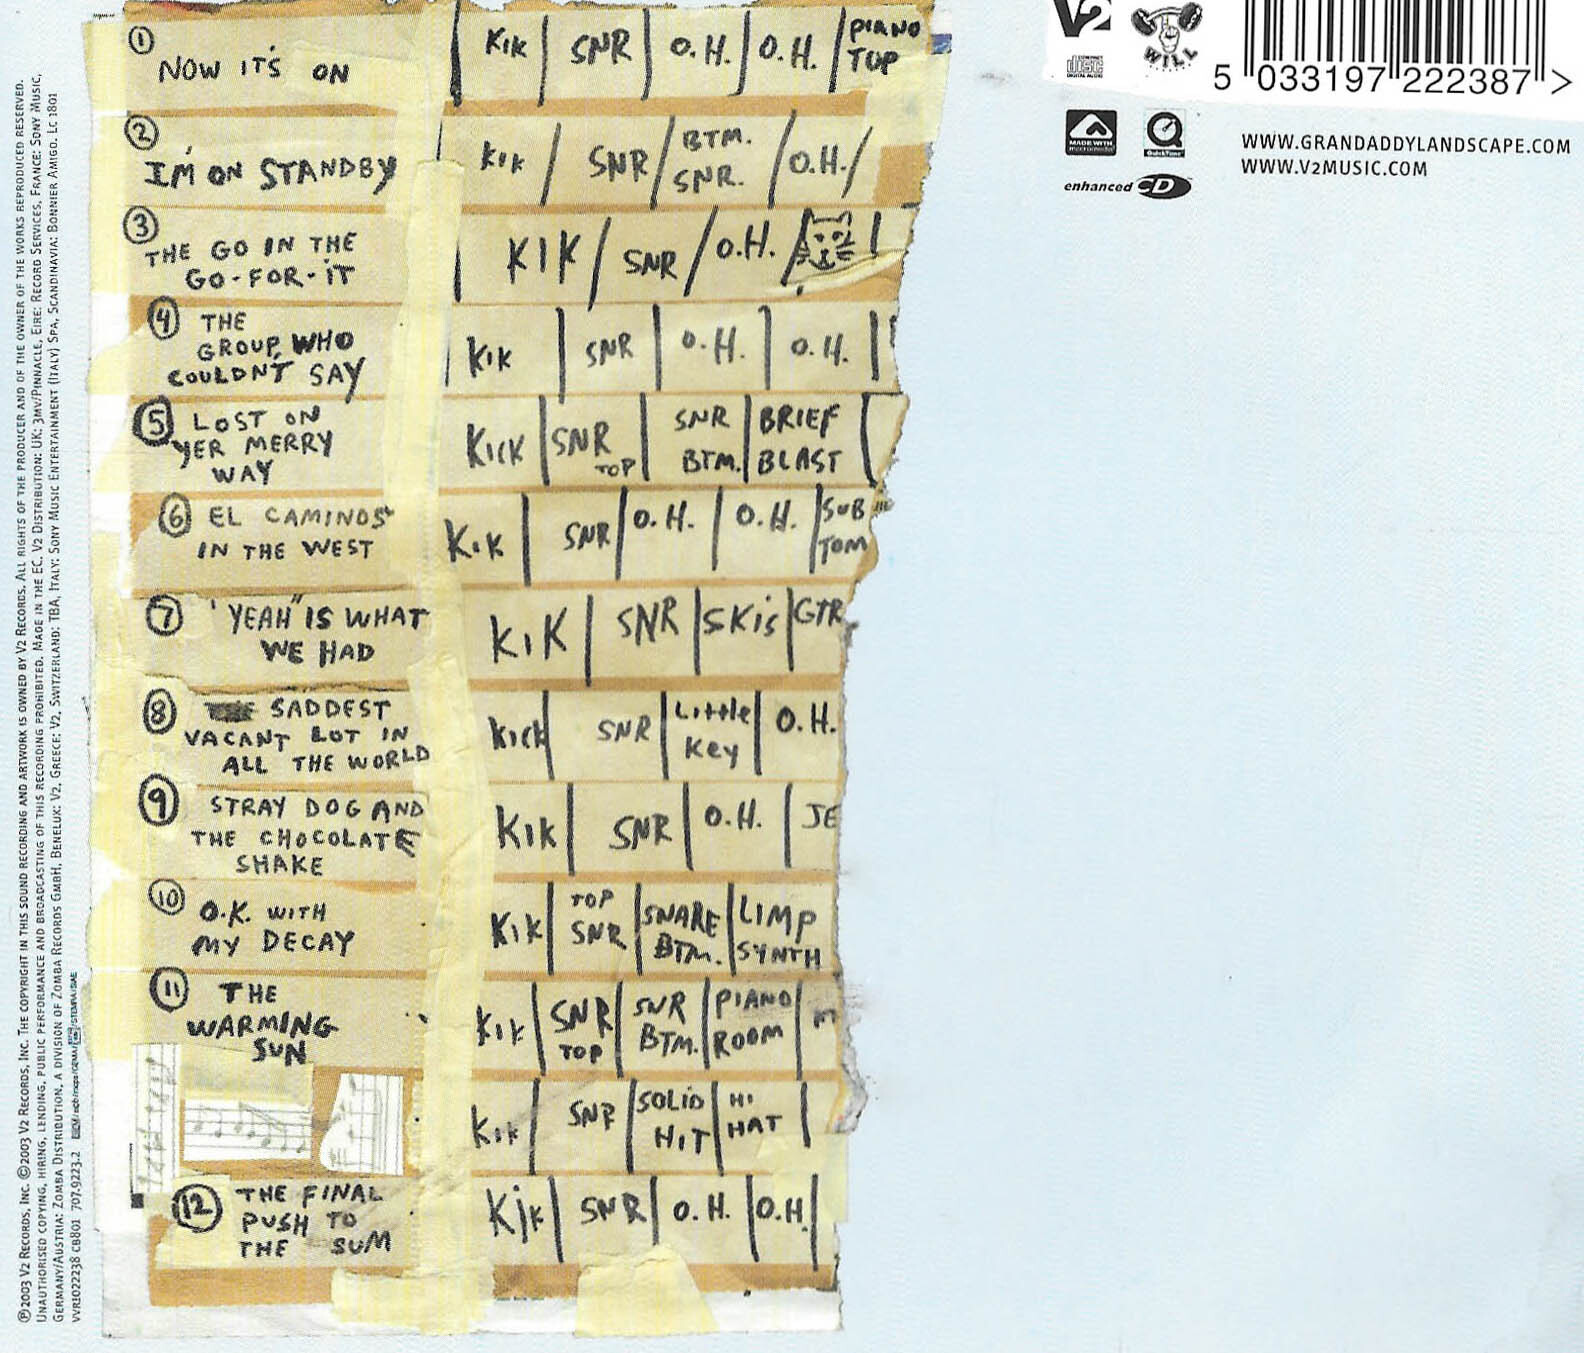 ① NOW IT'S ON
KIK SNR O.H. O.H. PIANO TOP
② I'M ON STANDBY
KIK SNR BTM. SNR. O.H.
③ THE GO IN THE
GO-FOR-IT
KIK SNR O.H.
④ THE
GROUP WHO
COULDN'T SAY
KIK SNR O.H. O.H.
⑤ LOST ON
YER MERRY
WAY
KICK SNR TOP SNR BTM. BRIEF BLAST
⑥ EL CAMINOS
IN THE WEST
KIK SNR O.H. O.H. SUB TOM
⑦ "YEAH" IS WHAT
WE HAD
KIK SNR SKIS GTR
⑧ SADDEST
VACANT LOT IN
ALL THE WORLD
KICK SNR LITTLE KEY O.H.
⑨ STRAY DOG AND
THE CHOCOLATE
SHAKE
KIK SNR O.H. JE
⑩ O.K. WITH
MY DECAY
KIK TOP SNR SNARE BTM. LIMP SYNTH
⑪ THE
WARMING
SUN
KIK SNR TOP SNR BTM. PIANO ROOM
KIK SNR SOLID HIT HI HAT
⑫ THE FINAL
PUSH TO
THE SUM
KIK SNR O.H. O.H.
V2
COMPACT disc DIGITAL AUDIO
WILL
5 033197 222387 >
MADE WITH macromedia
QuickTime
enhanced CD
WWW.GRANDADDYLANDSCAPE.COM
WWW.V2MUSIC.COM
℗2003 V2 RECORDS, INC. ©2003 V2 RECORDS, INC. THE COPYRIGHT IN THIS SOUND RECORDING AND ARTWORK IS OWNED BY V2 RECORDS. ALL RIGHTS OF THE PRODUCER AND OF THE OWNER OF THE WORKS REPRODUCED RESERVED.
UNAUTHORISED COPYING, HIRING, LENDING, PUBLIC PERFORMANCE AND BROADCASTING OF THIS RECORDING PROHIBITED. MADE IN THE EC. V2 DISTRIBUTION: UK: 3MV/PINNACLE, EIRE: RECORD SERVICES, FRANCE: SONY MUSIC,
GERMANY/AUSTRIA: ZOMBA DISTRIBUTION, A DIVISION OF ZOMBA RECORDS GMBH, BENELUX: V2, GREECE: V2, SWITZERLAND: TBA, ITALY: SONY MUSIC ENTERTAINMENT (ITALY) SPA, SCANDINAVIA: BONNIER AMIGO. LC 1801
VVR1022238 CB801 707.9223.2